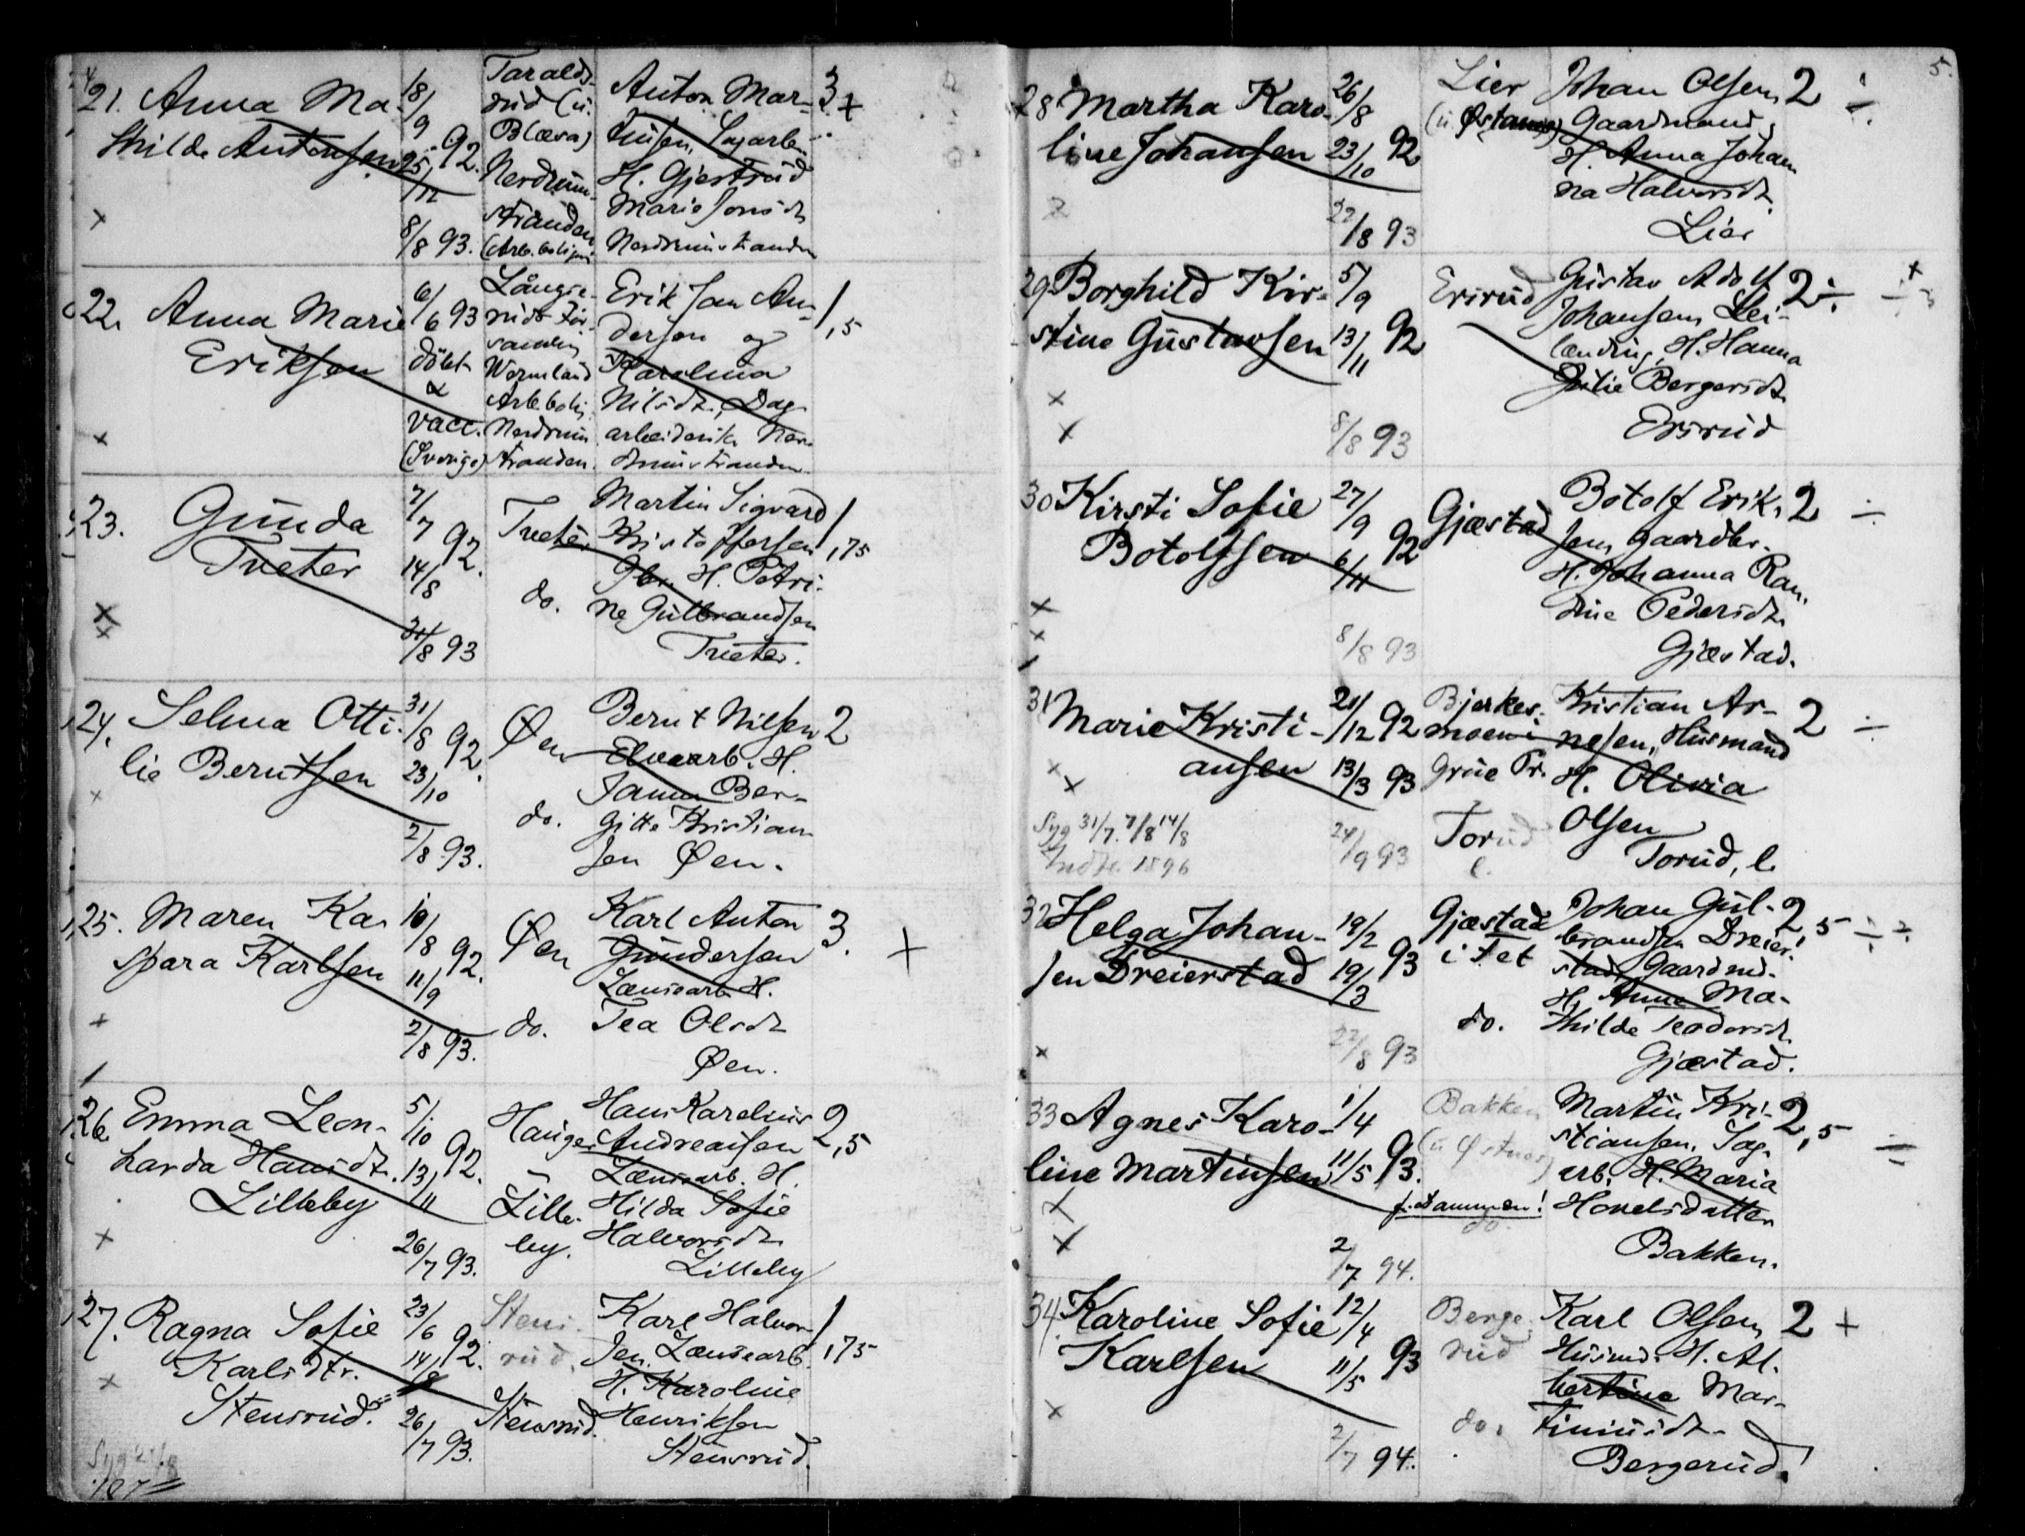 21. Anna Ma-
thilde Antonsen
18/9 92.
25/12
8/8 93.
Taralds-
rud (u.
Blæsa)
Nordrum-
stranden
(Arb.bolig
Anton Mar-
tinsen, Sagarb.
H. Gjertrud
Marie Jonsdt.
Nordrumstranden
3 +
22. Anna Marie
Eriksen
6/6 93
döbt
&
vacc.
(Sverige)
Långse-
ruds För-
samling
Wermland
Arb.bolig
Nordrum
stranden.
Erik Jan An-
dersen og
Karolina
Nilsdt., Dag-
arbeidersk. Nor-
drumstranden.
1,5
23. Gunda
Tveter
7/7 92.
14/8
21/8 93
Tveter
do.
Martin Sigvard
Kristoffersen
Gbr. H. Petri-
ne Gulbrandsen
Tveter.
1,75
24. Selma Otti-
lie Berntsen
31/8 92.
23/10
2/8 93.
Øen
do.
Bernt Nilsen
Elvearb. H.
Janna Ber-
gitte Kristian-
sen Øen.
2
25. Maren Ka-
spara Karlsen
10/8 92.
11/9
2/8 93.
Øen
do.
Karl Anton
Gundersen
Lænsearb. H.
Tea Olsdt
Øen.
3. +
26. Emma Leon-
harda Hansdt.
Lilleby
5/10 92.
13/11
26/7 93.
Hauger
Lille-
by.
Hans Karelius
Andreasen
Lænsearb. H.
Hilda Sofie
Halvorsdt.
Lilleby
2,5
27. Ragna Sofie
Karlsdtr.
Stensrud.
23/6 92.
14/8
26/7 93.
Stens-
rud.
Stensrud.
Karl Halvor-
sen Lænsearb.
H. Karoline
Henriksen
Stensrud.
1,75
Syg 21/8
5.
28 Martha Karo-
line Johansen
26/8
23/10 92
22/8 93
Lier
(u. Østanes)
Johan Olsen,
Gaardmand,
H. Anna Johan-
na Halvorsdt.
Lier
2 ÷
29 Borghild Kir-
stine Gustavsen
5/9
13/11 92
8/8 93
Ersrud
Gustav Adolf
Johansen, Lei-
lænding, H. Hanna
Julie Bergersdt.
Ersrud
2 ÷
30 Kirsti Sofie
Botolfsen
27/9 92
6/11
8/8 93
Gjæstad
Botolf Erik-
sen, Gaardbr.
H. Johanna Ran-
dine Pedersdt.
Gjæstad.
2 ÷
31 Marie Kristi-
ansen
21/12 92
13/3 93
24/9 93
Syg 31/7. 7/8 14/8
Indk. 1896
Bjerkes-
moen i
Grue Pr.
Torud
l.
Kristian Ar-
nesen, Husmand
H. Olivia
Olsen
Torud, l.
2 ÷
32 Helga Johan-
sen Dreierstad
19/2
19/3 93
22/8 93
Gjæstad
i Fet
do.
Johan Gul-
brandsen Dreier-
stad, Gaardmd.
H. Anna Ma-
thilde Teodorsdt.
Gjæstad.
2,5 ÷
33 Agnes Karo-
line Martinsen
1/4
11/5 93.
2/7 94.
Bakken
(u Østnes)
f. Dammen!
do
Martin Kri-
stiansen, Sag-
arb. H. Maria
Hovelsdatter
Bakken.
2,5 ÷
34 Karoline Sofie
Karlsen
12/4
11/5 93
2/7 94.
Berge-
rud
do.
Karl Olsen
Husmd. H. Al-
bertine Mar-
tiniusdt.
Bergerud.
2 +